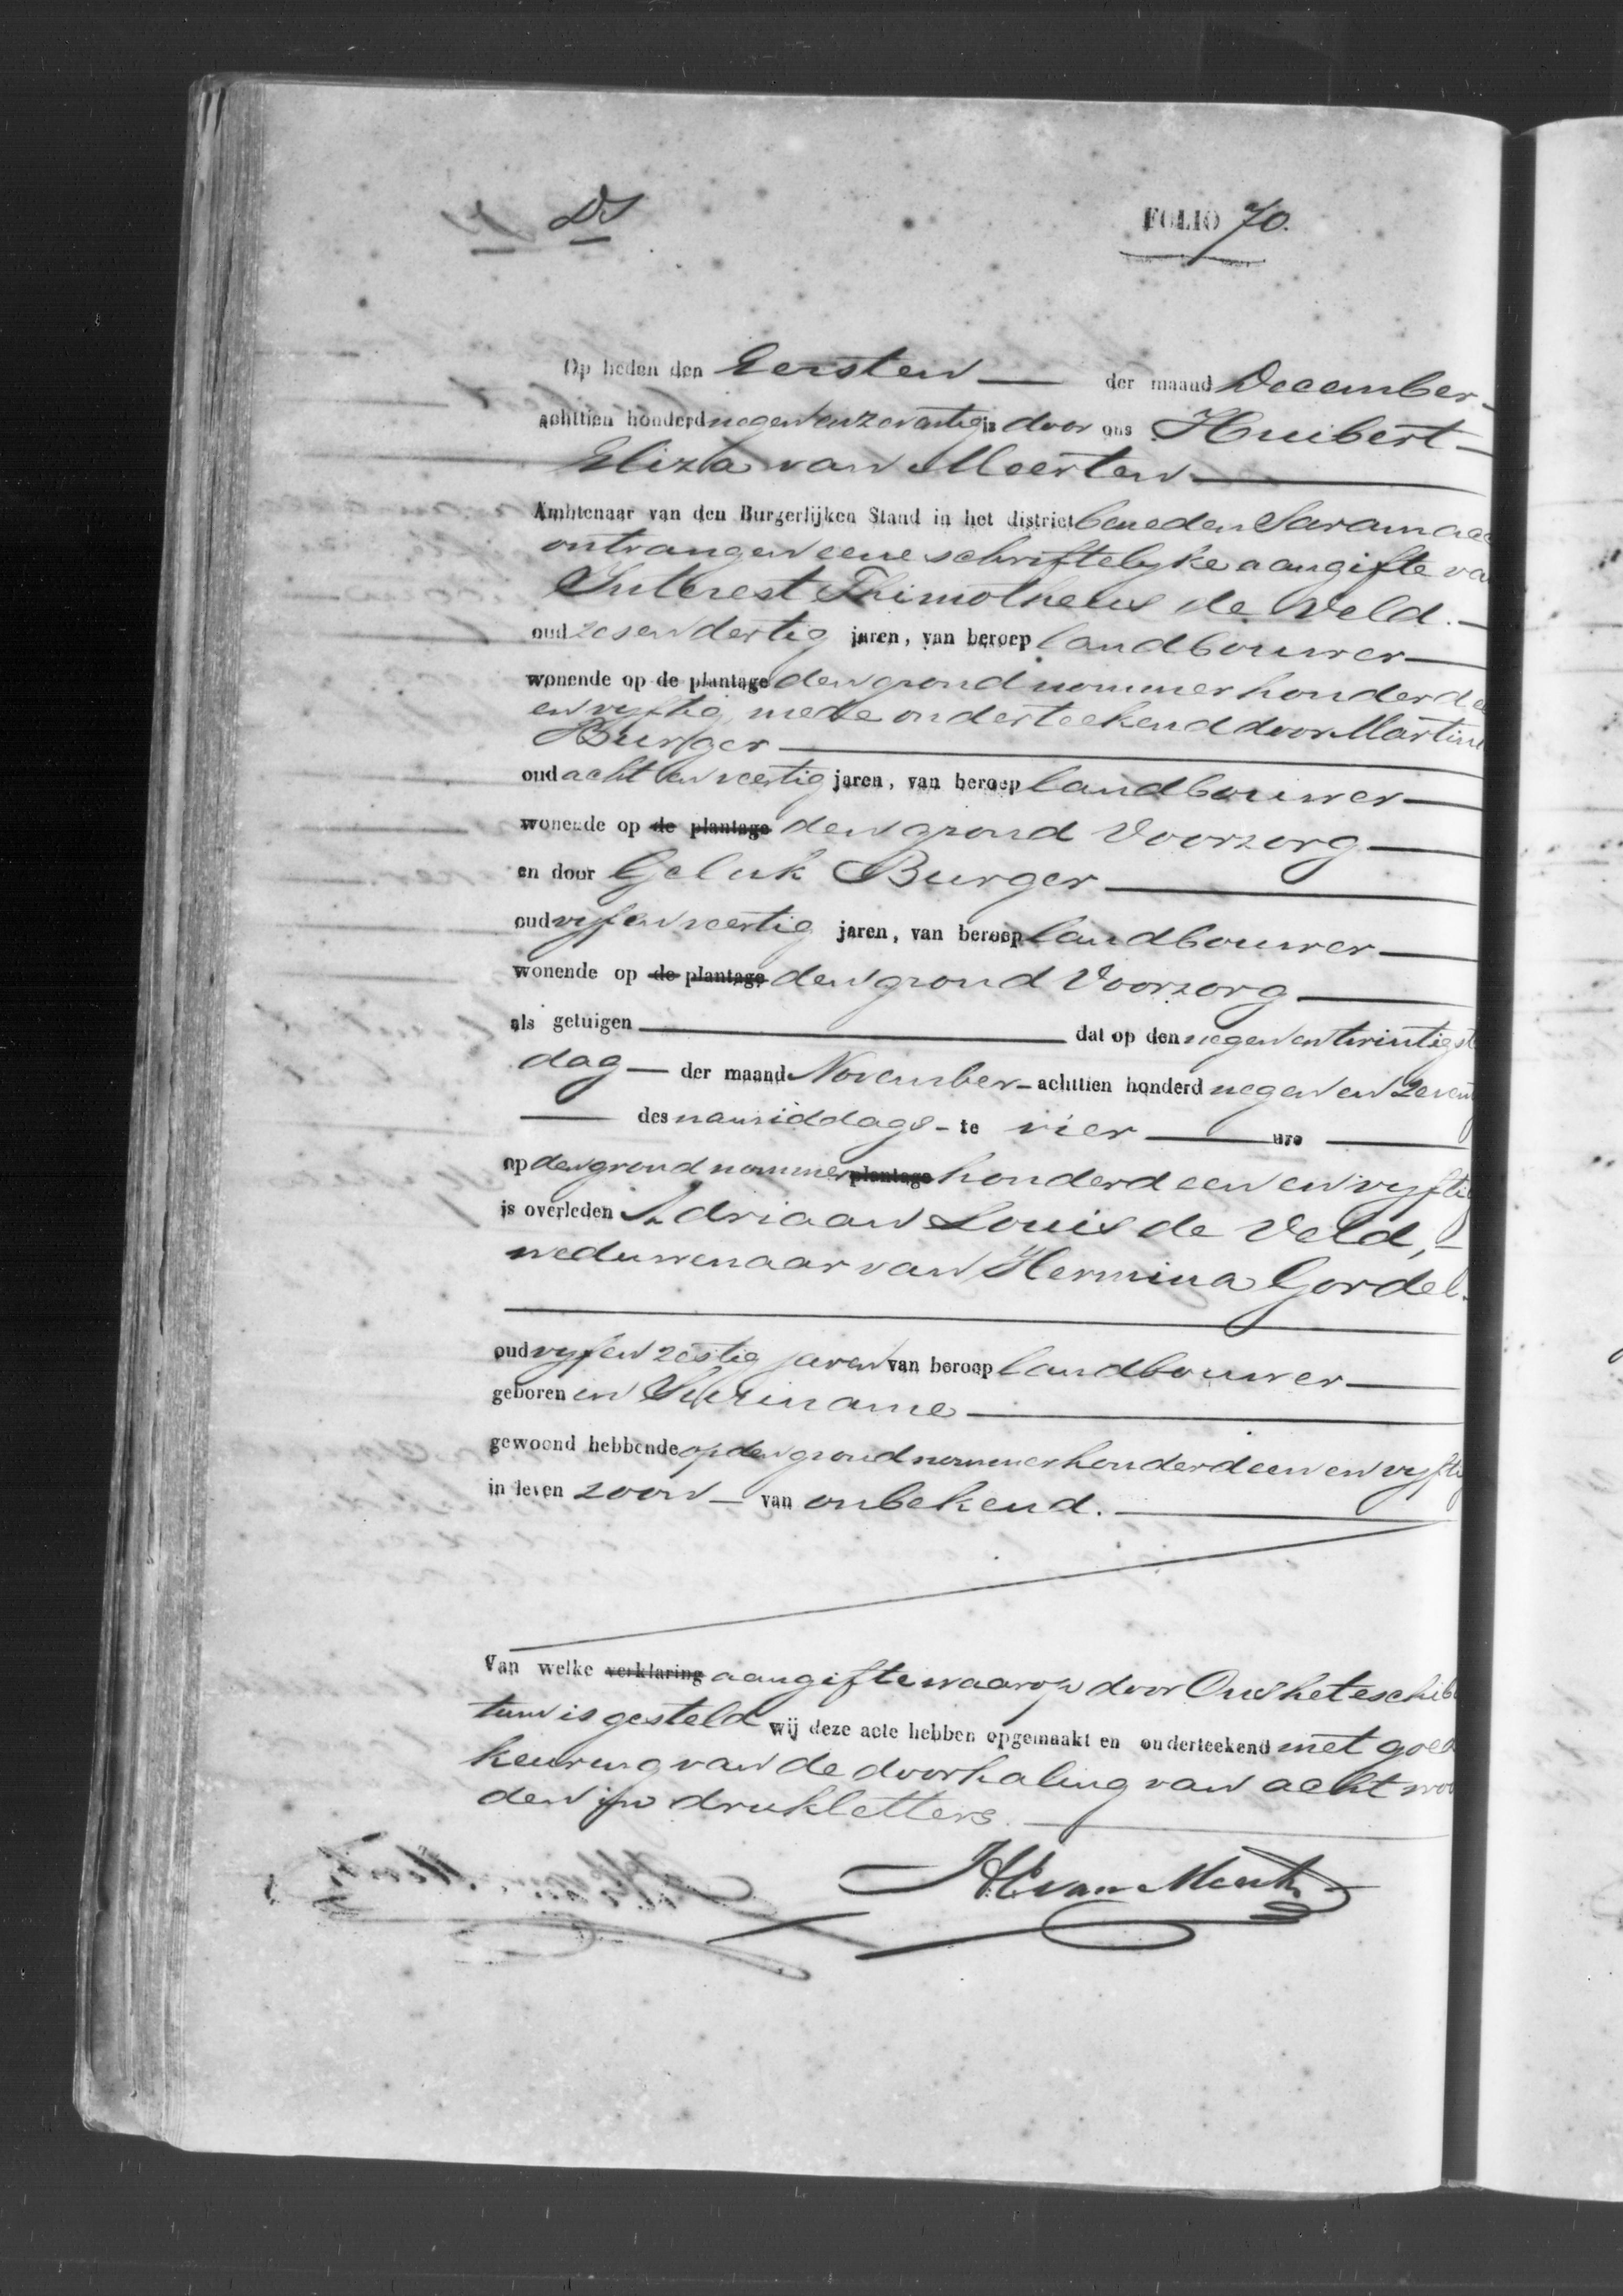 DS
FOLIO 70.
Op heden den Eersten — der maand December –
achttien honderd negen en zeventig is door ons Huibert –
Eliza van Meerten —
Ambtenaar van den Burgerlijken Stand in het district beneden Saramac
ontvangen eene schriftelyke aangifte va
Interest Thimotheus de Veld. –
oud zes en dertig jaren, van beroep landbouwer —
wonende op de plantage den grond nommer honderd e
en vyftig, mede onderteekend door Martin
Burger —
oud acht en veertig jaren, van beroep landbouwer —
wonende op de plantage den grond Voorzorg —
en door Geluk Burger —
oud vyf en veertig jaren, van beroep landbouwer —
wonende op de plantage den grond Voorzorg —
als getuigen — dat op den negen en twintigst
dag — der maand November – achttien honderd negen en zevent
— des namiddags – te vier — ure —
op den grond nommer plantage honderd een en vyftig
is overleden Adriaan Louis de Veld, –
weduwenaar van Hermina Gordel.
oud vyf en zestig jaren van beroep landbouwer —
geboren in Suriname —
gewoond hebbende op den grond nommer honderd een en vyftig
in leven zoon – van onbekend. —
Van welke verklaring aangifte waarop door Ons het exhibi
tum is gesteld wij deze acte hebben opgemaakt en onderteekend met goed
keuring van de doorhaling van acht woor
den in drukletters. —
HE van Meerten